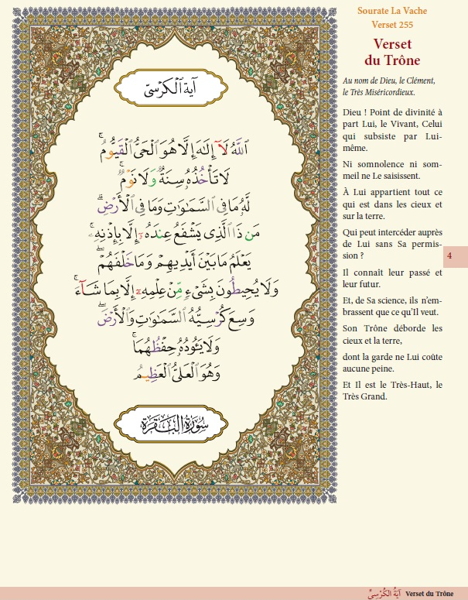 آية الكرسي
ٱللَّهُ لَآ إِلَٰهَ إِلَّا هُوَ ٱلْحَىُّ ٱلْقَيُّومُ ۚ
لَا تَأْخُذُهُۥ سِنَةٌ وَلَا نَوْمٌ ۚ
لَّهُۥ مَا فِى ٱلسَّمَٰوَٰتِ وَمَا فِى ٱلْأَرْضِ ۗ
مَن ذَا ٱلَّذِى يَشْفَعُ عِندَهُۥٓ إِلَّا بِإِذْنِهِۦ ۚ
يَعْلَمُ مَا بَيْنَ أَيْدِيهِمْ وَمَا خَلْفَهُمْ ۖ
وَلَا يُحِيطُونَ بِشَىْءٍ مِّنْ عِلْمِهِۦٓ إِلَّا بِمَا شَآءَ ۚ
وَسِعَ كُرْسِيُّهُ ٱلسَّمَٰوَٰتِ وَٱلْأَرْضَ ۖ
وَلَا يَـُٔودُهُۥ حِفْظُهُمَا ۚ
وَهُوَ ٱلْعَلِىُّ ٱلْعَظِيمُ
سُورَةُ البَقَرَة
Sourate La Vache
Verset 255
Verset
du Trône
Au nom de Dieu, le Clément,
le Très Miséricordieux.
Dieu ! Point de divinité à
part Lui, le Vivant, Celui
qui subsiste par Lui-
même.
Ni somnolence ni som-
meil ne Le saisissent.
À Lui appartient tout ce
qui est dans les cieux et
sur la terre.
Qui peut intercéder auprès
de Lui sans Sa permis-
sion ?
Il connaît leur passé et
leur futur.
Et, de Sa science, ils n'em-
brassent que ce qu'Il veut.
Son Trône déborde les
cieux et la terre,
dont la garde ne Lui coûte
aucune peine.
Et Il est le Très-Haut, le
Très Grand.
4
آيَةُ الكُرْسِيِّ Verset du Trône